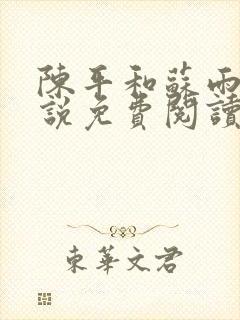 陳平和蘇雨
說免費閱讀
東華文君